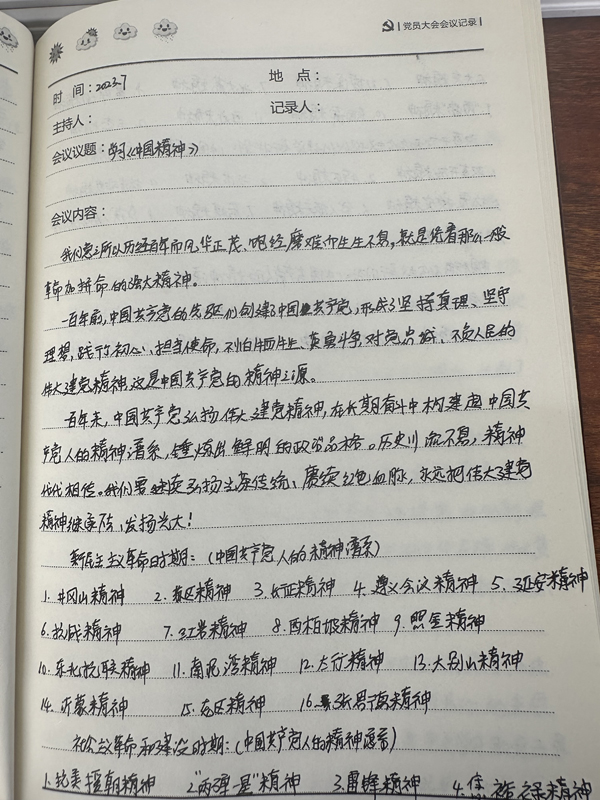 党员大会会议记录
时 间：2023.7 地 点：
主持人： 记录人：
会议议题：学习《中国精神》
会议内容：
我们党之所以历经百年而风华正茂、饱经磨难而生生不息，就是凭着那么一股
革命加拼命的强大精神。
一百年前，中国共产党的先驱们创建了中国共产党，形成了坚持真理、坚守
理想，践行初心、担当使命，不怕牺牲、英勇斗争，对党忠诚、不负人民的
伟大建党精神，这是中国共产党的精神之源。
百年来，中国共产党弘扬伟大建党精神，在长期奋斗中构建起中国共
产党人的精神谱系，锤炼出鲜明的政治品格。历史川流不息，精神
代代相传。我们要继续弘扬光荣传统、赓续红色血脉，永远把伟大建党
精神继承下去、发扬光大！
新民主主义革命时期：（中国共产党人的精神谱系）
1. 井冈山精神 2. 苏区精神 3. 长征精神 4. 遵义会议精神 5. 延安精神
6. 抗战精神 7. 红岩精神 8. 西柏坡精神 9. 照金精神
10. 东北抗联精神 11. 南泥湾精神 12. 太行精神 13. 大别山精神
14. 沂蒙精神 15. 老区精神 16. 张思德精神
社会主义革命和建设时期：（中国共产党人的精神谱系）
1. 抗美援朝精神 2. “两弹一星”精神 3. 雷锋精神 4. 焦裕禄精神